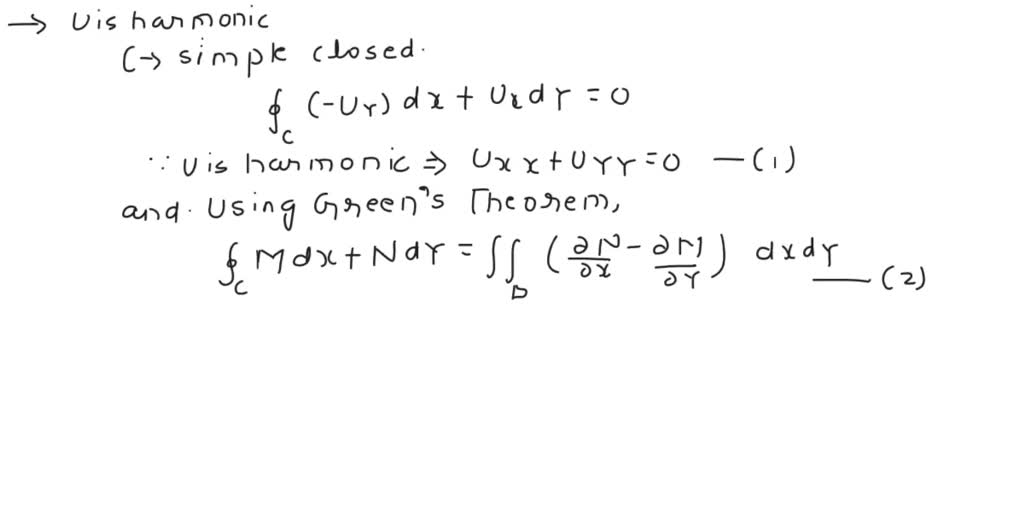 → U is harmonic
C → simple closed.
∮_C (-U_Y) dx + U_x dY = 0
∵ U is harmonic ⇒ U_xx + U_YY = 0 — (1)
and. Using Green's Theorem,
∮_C M dx + N dY = ∬_D (∂N/∂x - ∂M/∂Y) dx dY — (2)